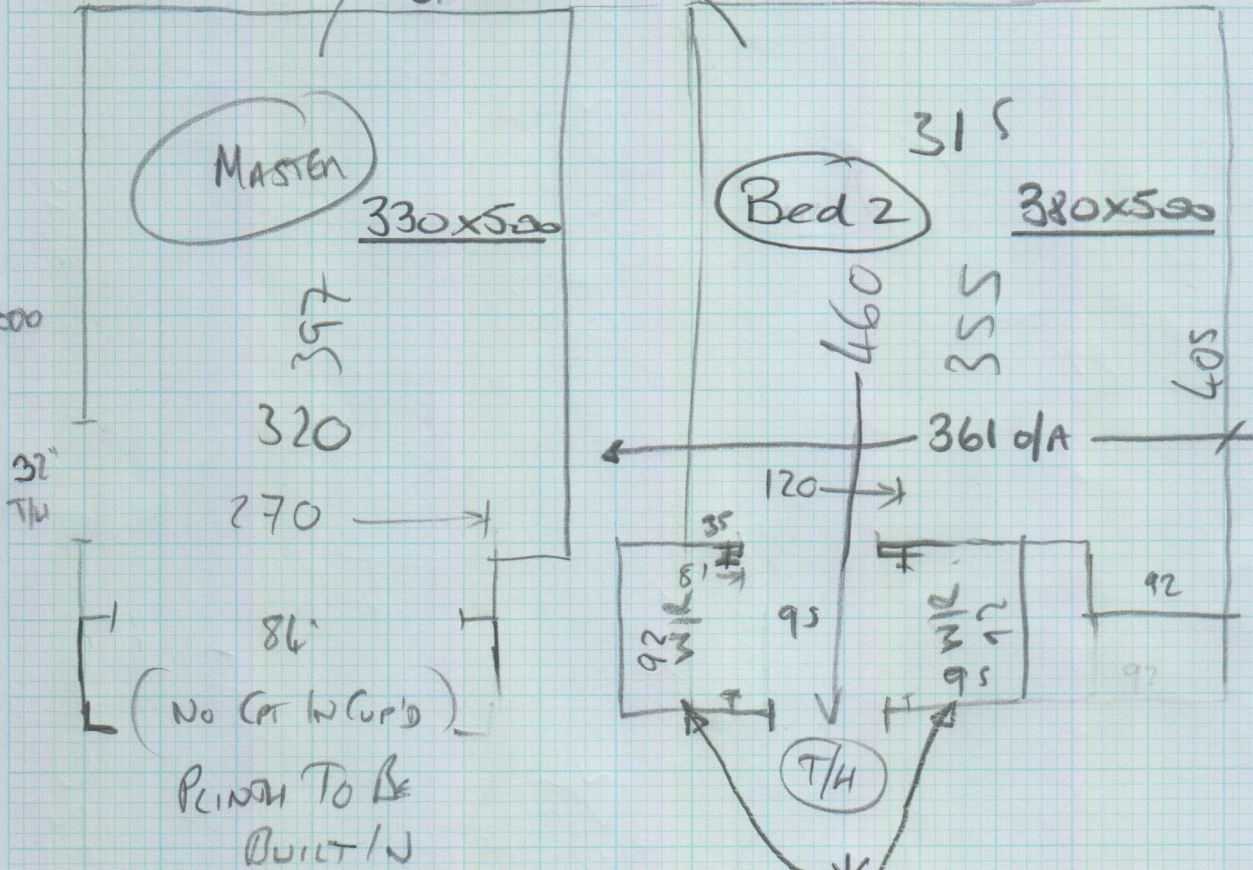 MASTER
330x500
397
320
270
32"
T/H
84
(NO CPT IN CUP'D)
PLINTH TO BE
BUILT/N
315
Bed 2
380x500
460
355
405
361 O/A
120
35
81
92
W/R
95
W/R
95
92
92
T/H